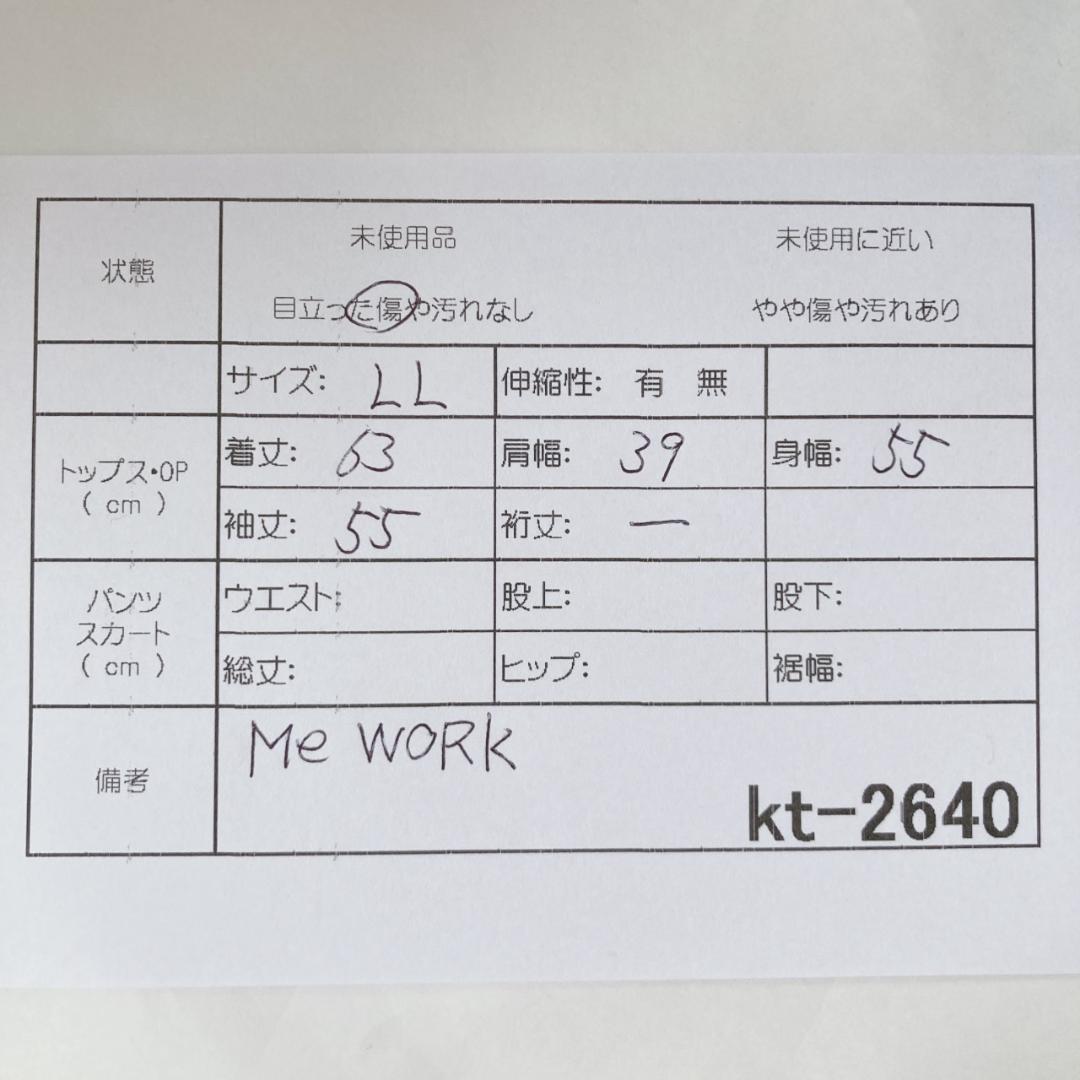 状態
未使用品 未使用に近い
目立った傷や汚れなし やや傷や汚れあり
サイズ: LL 伸縮性: 有 無
トップス・OP
( cm )
着丈: 63 肩幅: 39 身幅: 55
袖丈: 55 裄丈: ー
パンツ
スカート
( cm )
ウエスト: 股上: 股下:
総丈: ヒップ: 裾幅:
備考
Me WORK
kt-2640